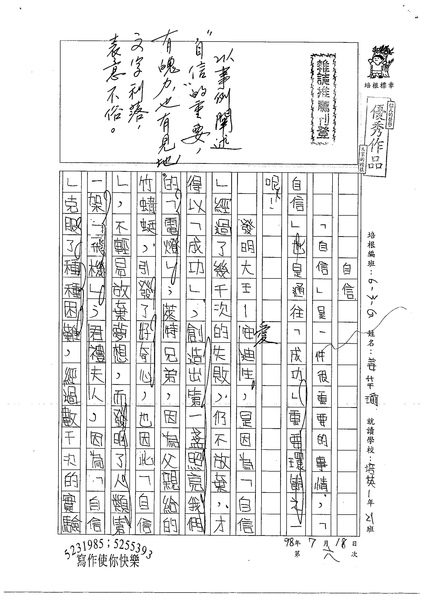 培根標章
優秀作品
推薦刊登
以事例闡述
"自信"的重要,
有魄力,也有見地
文字利落,
袁意不俗。
培根編班:
姓名:
就讀學校:培英1年21班
98年7月18日
第六次
自信
「自信」是一件很重要的事情,「
自信」也是通往「成功」重要環節之一
呢!
發明大王—愛迪生,是因為「自信
」經過了幾千次的失敗,仍不放棄,才
得以「成功」,創造出第一盞照亮我們
的「電燈」;萊特兄弟,因為父親給的
竹蜻蜓,引發了好奇心,也因此「自信
」,不輕易放棄夢想,而發明了人類第
一架「飛機」;居禮夫人,因為「自信
」克服了種種困難,經過數千次的實驗
5231985;5255393
寫作使你快樂